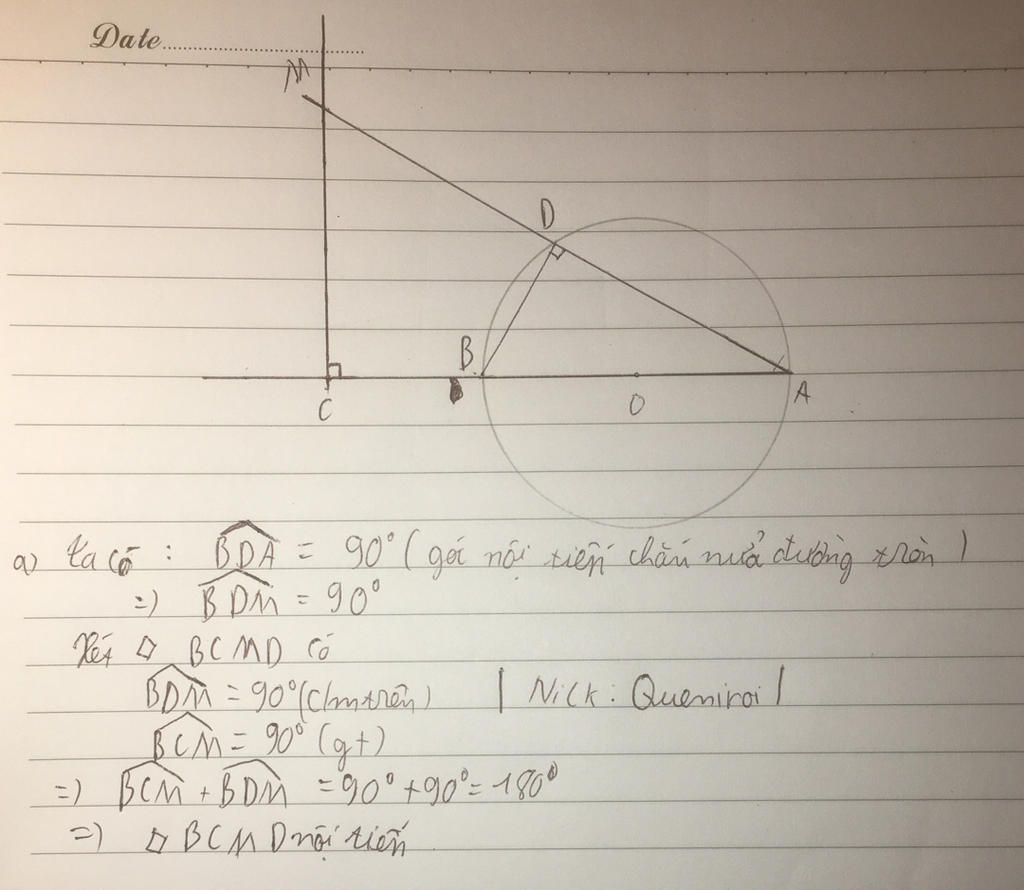 Date
M
D
B
C
O
A
a) Ta có : BDA = 90° (góc nội tiếp chắn nửa đường tròn)
=> BDM = 90°
Xét ▱ BCMD có
BDM = 90° (c/m trên) | Nick: Queniroi |
BCM = 90° (gt)
=> BCM + BDM = 90° + 90° = 180°
=> ▱ BCMD nội tiếp